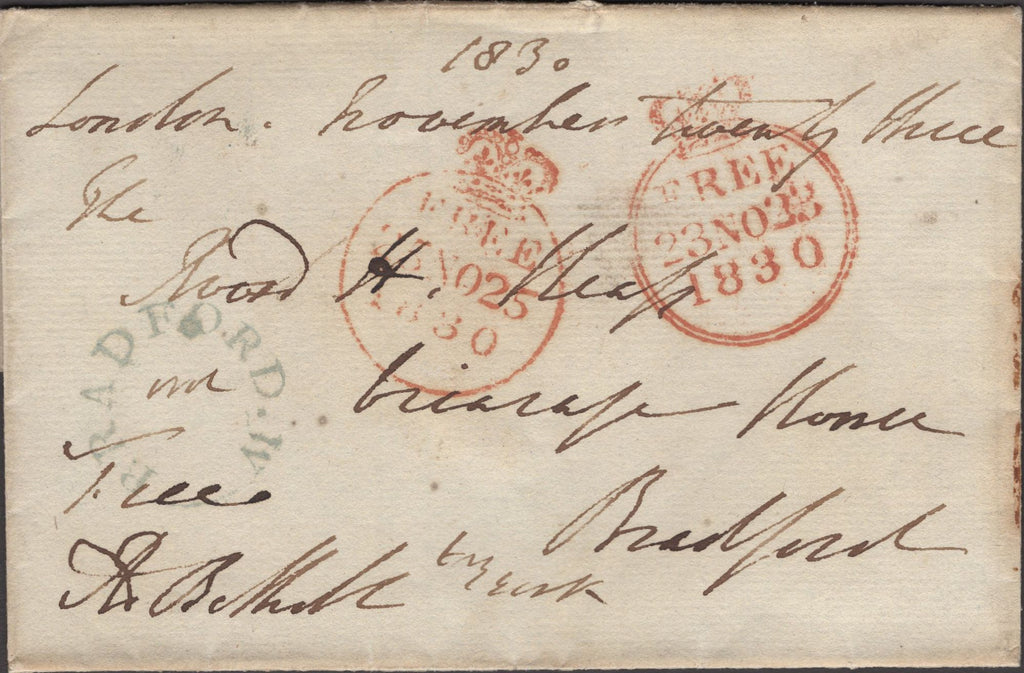 1830
London. November twenty three
The
Revd H. Heap
Bradford
Free
R Bethell
by York
FREE
NO25
1830
FREE
23NO23
1830
BRADFORD.